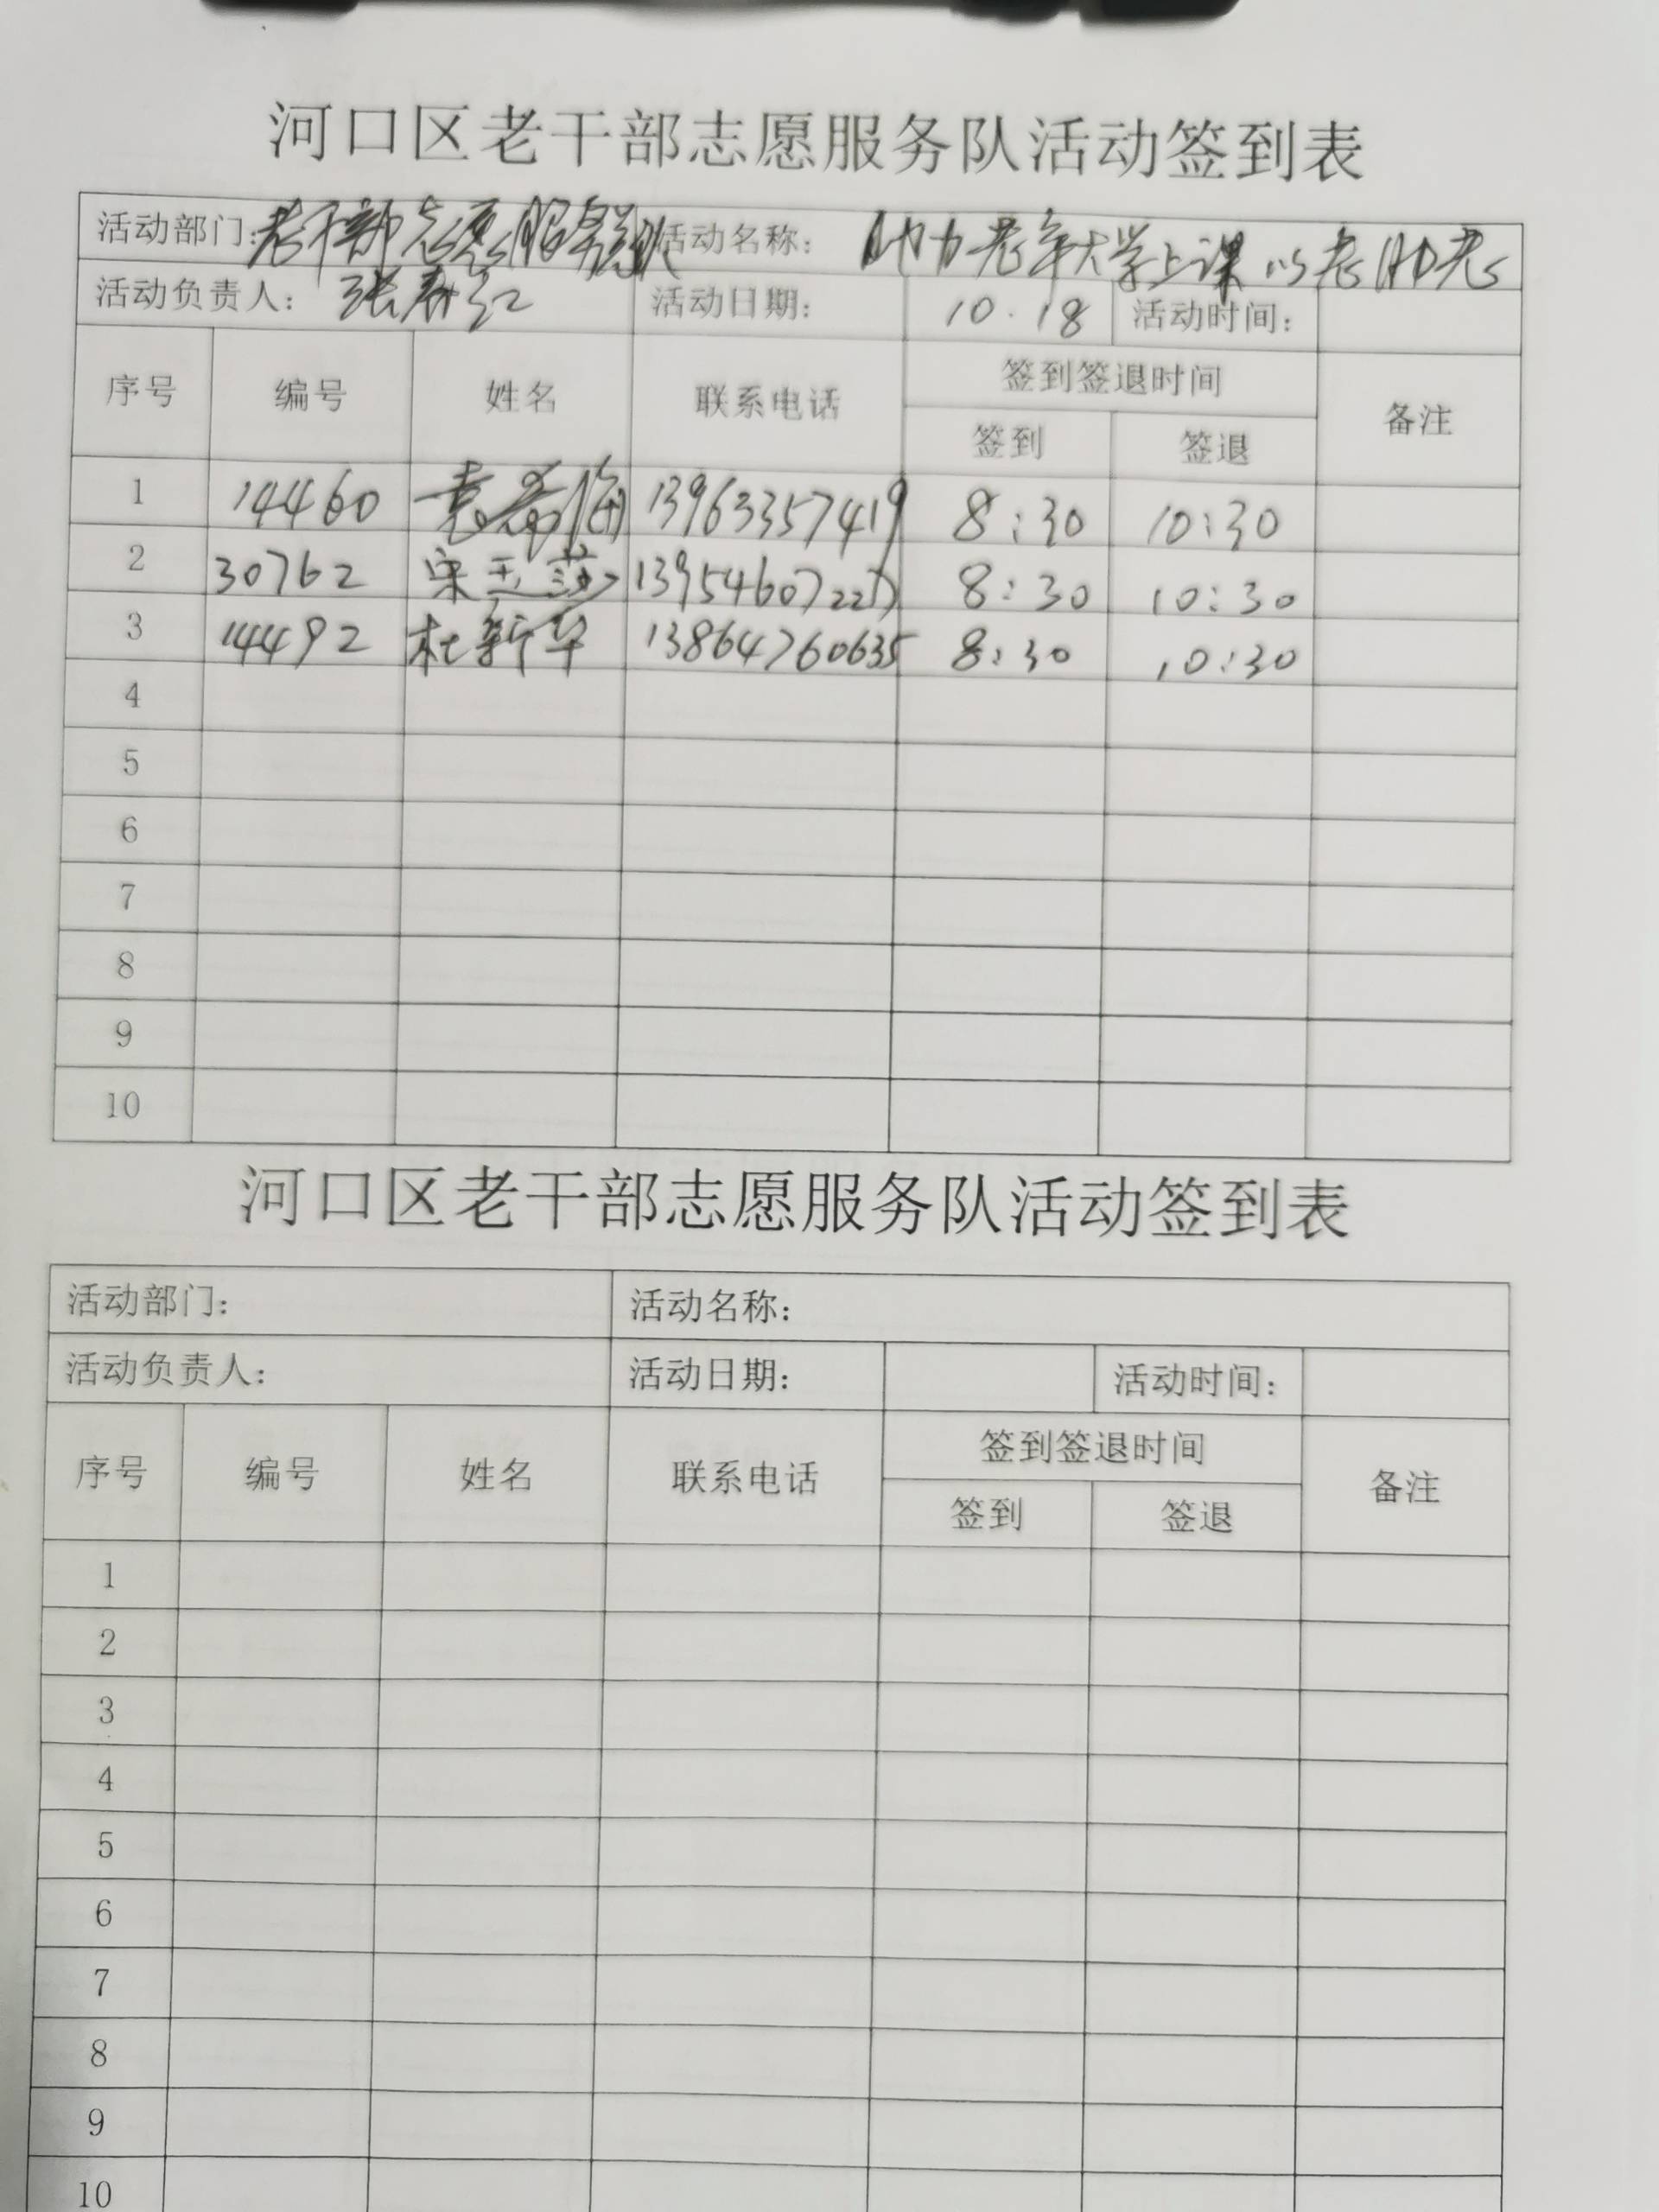 河口区老干部志愿服务队活动签到表
活动部门:老干部志愿服务队 活动名称: 助力老年大学上课 以老助老
活动负责人: 张春红 活动日期: 10.18 活动时间:
序号 编号 姓名 联系电话 签到签退时间 备注
签到 签退
1 14460 袁 13963357419 8:30 10:30
2 30762 宋玉莎 8:30 10:30
3 14492 杜新华 13864760635 8:30 10:30
4
5
6
7
8
9
10
河口区老干部志愿服务队活动签到表
活动部门: 活动名称:
活动负责人: 活动日期: 活动时间:
序号 编号 姓名 联系电话 签到签退时间 备注
签到 签退
1
2
3
4
5
6
7
8
9
10